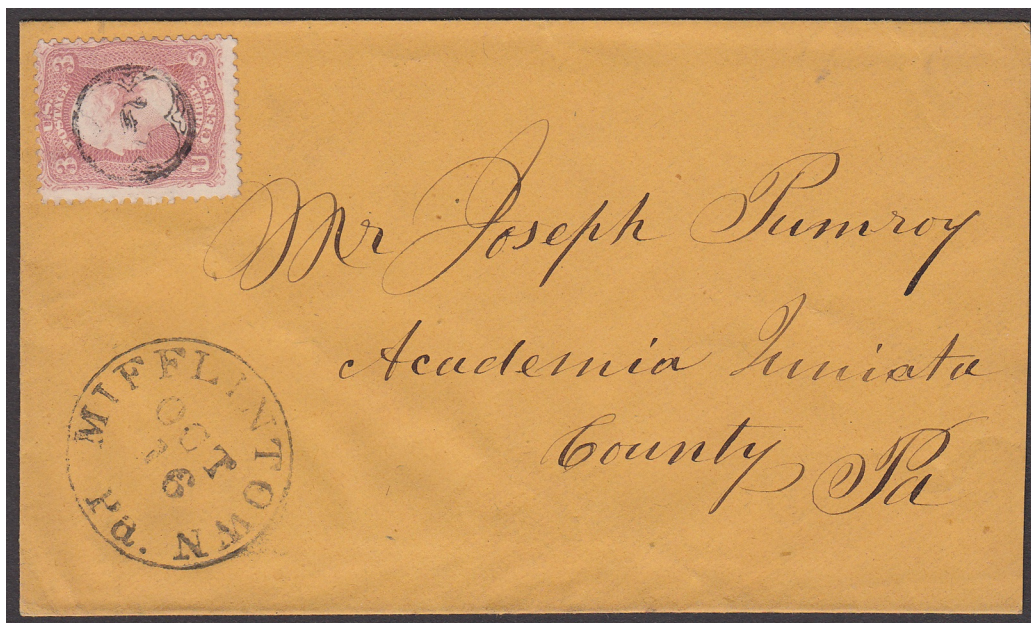 U.S. POSTAGE
3 3
THREE CENTS
U S
Mr Joseph Pumroy
Academia Juniata
County Pa
MIFFLINTOWN Pa.
OCT
26